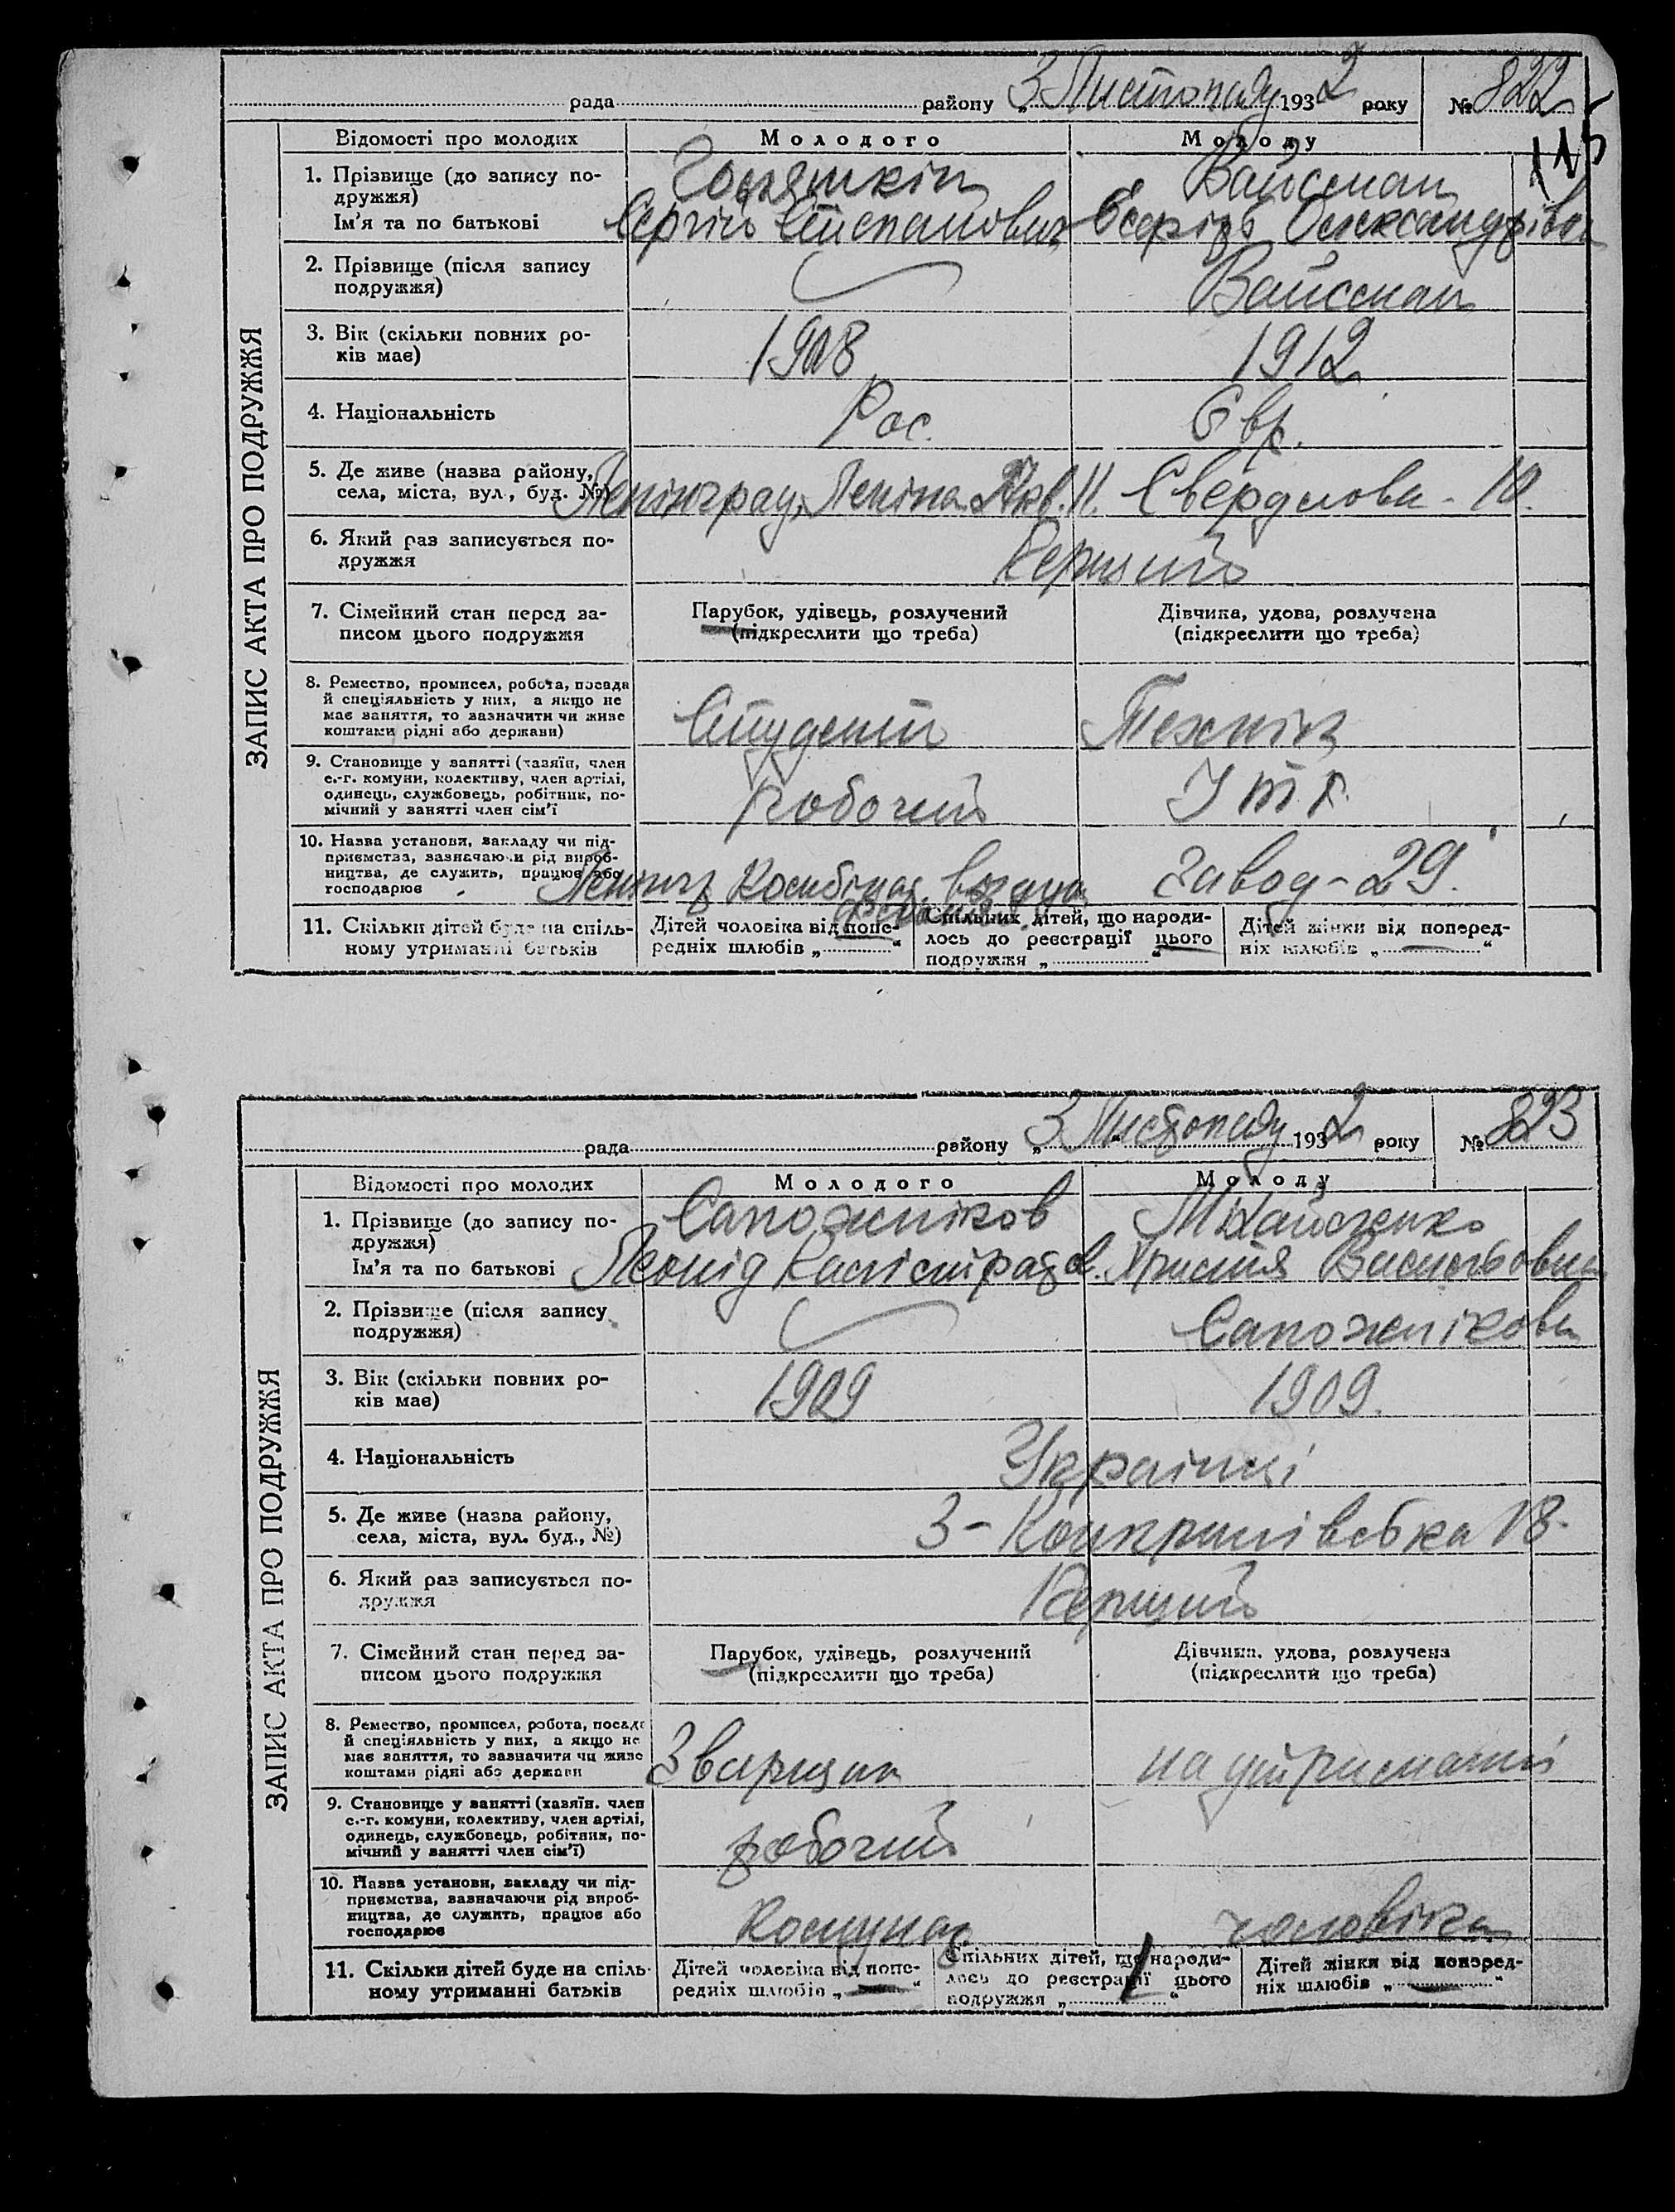 рада району „3 Листопаду 1932 року № 822
115
ЗАПИС АКТА ПРО ПОДРУЖЖЯ
Відомості про молодих Молодого Молоду
1. Прізвище (до запису по- Вайсман
дружжя)
Ім'я та по батькові Сергій Степанович Олександрівна
2. Прізвище (після запису
подружжя) Вайсман
3. Вік (скільки повних ро- 1908 1912
ків має)
4. Національність Рос. Євр.
5. Де живе (назва району, 
села, міста, вул., буд. №) Ленінград, Леніна кв. 11. Свердлова - 10.
6. Який раз записується по- Перший
дружжя
7. Сімейний стан перед за- Парубок, удівець, розлучений Дівчина, удова, розлучена
писом цього подружжя (підкреслити що треба) (підкреслити що треба)
8. Ремество, промисел, робота, посада
й спеціяльність у них, а якщо не
має заняття, то зазначити чи живе Студент Технік
коштами рідні або держави)
9. Становище у занятті (хазяїн, член
с.-г. комуни, колективу, член артілі,
одинець, службовець, робітник, по- робочий ІТР.
мічний у занятті член сім'ї
10. Назва установи, закладу чи під-
приємства, зазначаючи рід вироб-
ництва, де служить, працює або Завод-29.
господарює
11. Скільки дітей буде на спіль- Дітей чоловіка від попе- Спільних дітей, що народи- Дітей жінки від поперед-
ному утриманні батьків редніх шлюбів „ “ лось до реєстрації цього ніх шлюбів „ “
подружжя „ “
рада району „3 Листопаду 1932 року № 823
ЗАПИС АКТА ПРО ПОДРУЖЖЯ
Відомості про молодих Молодого Молоду
1. Прізвище (до запису по- Сапожніков Міхайленко
дружжя)
Ім'я та по батькові Леонід Калістратов. Христя Васильовна
2. Прізвище (після запису Сапожнікова
подружжя)
3. Вік (скільки повних ро- 1909 1909.
ків має)
4. Національність Українці
5. Де живе (назва району,
села, міста, вул. буд., №) 3- 18.
6. Який раз записується по- Перший
дружжя
7. Сімейний стан перед за- Парубок, удівець, розлучений Дівчина. удова, розлучена
писом цього подружжя (підкреслити що треба) (підкреслити що треба)
8. Ремество, промисел, робота, посада
й спеціяльність у них, а якщо не
має заняття, то зазначити чи живе Зварщик на утриманні
коштами рідні або держави
9. Становище у занятті (хазяїн. член
с.-г. комуни, колективу, член артілі,
одинець, службовець, робітник, по- робочий
мічний у занятті член сім'ї)
10. Назва установи, закладу чи під-
приємства, зазначаючи рід вироб-
ництва, де служить, працює або Комунар чоловіка
господарює
11. Скільки дітей буде на спіль- Дітей чоловіка від попе- Спільних дітей, що народи- Дітей жінки від поперед-
ному утриманні батьків редніх шлюбів „ “ лось до реєстрації цього ніх шлюбів „ “
подружжя „ 1 “